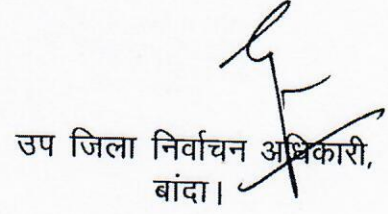 उप जिला निर्वाचन अधिकारी,
बांदा।